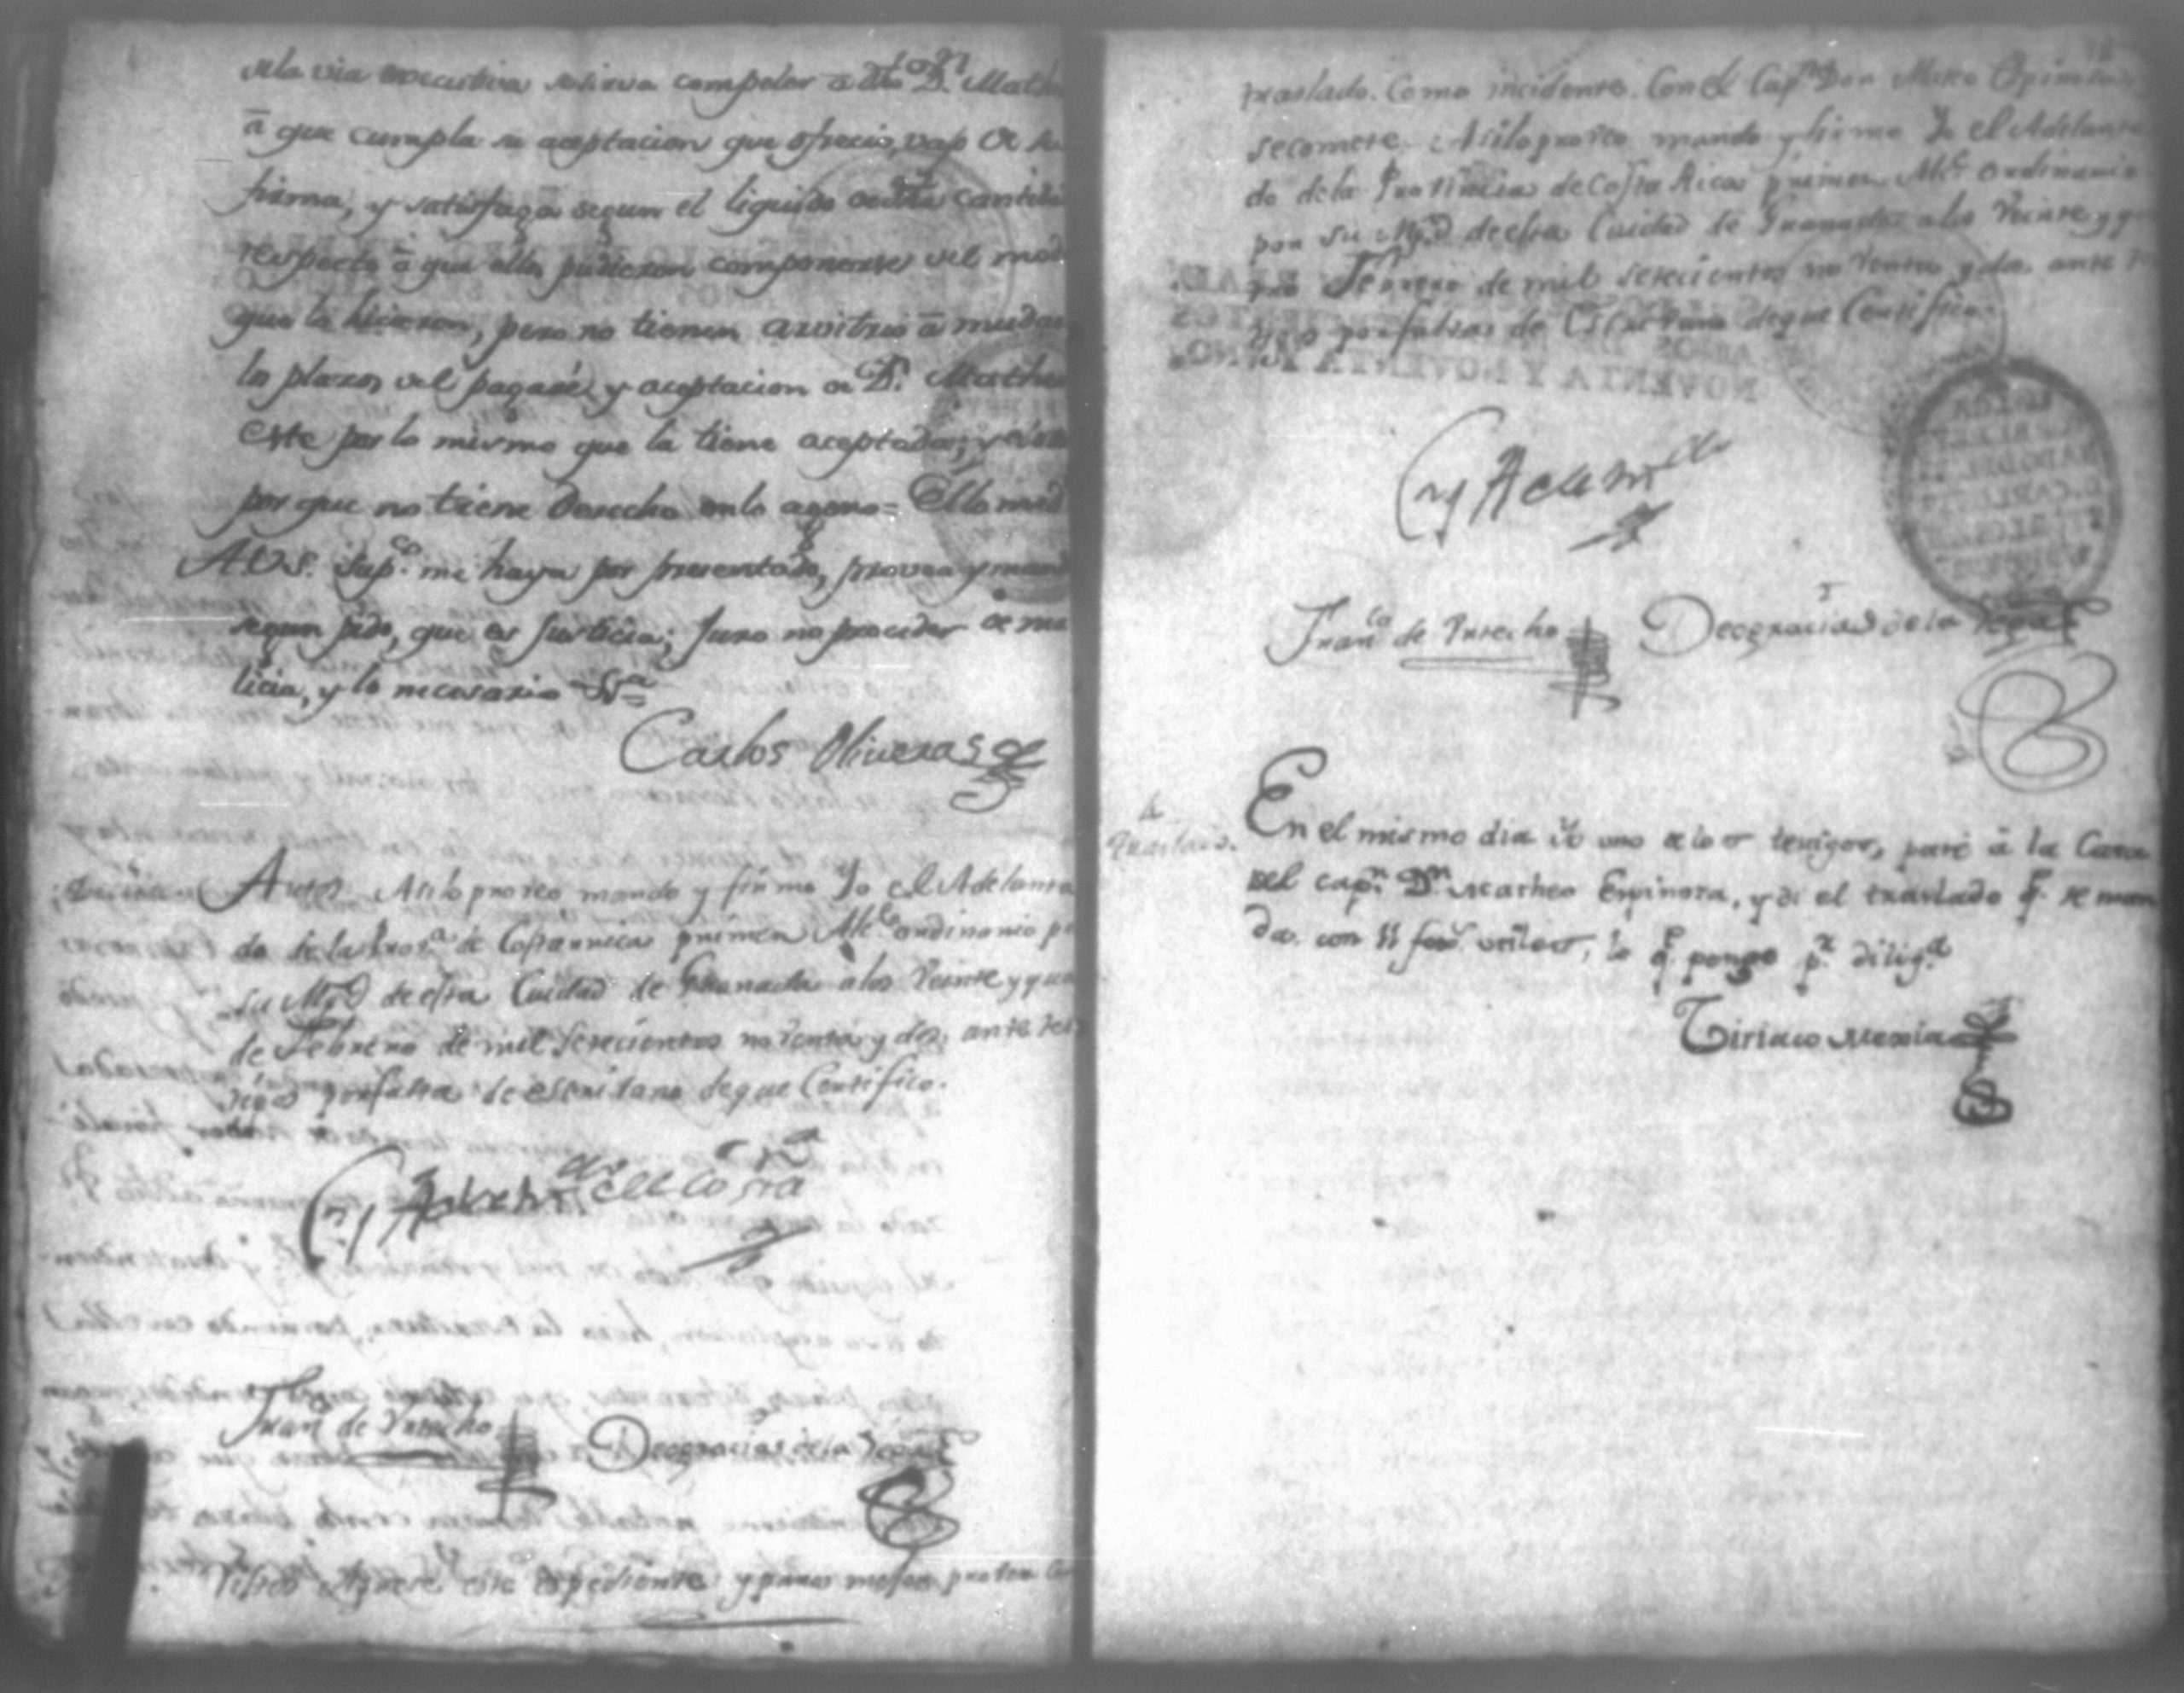 dela via executiva se sirva compeler a dho D.n Mathe
â que cumpla su aceptacion que ofrecio, vajo de su
firma, y satisfaga segun el liquido de dha cantida
respecto â que ellos pudieron componerse del mod
que lo hicieron, pero no tienen arvitrio â mudar
los plazos del pagaré, y aceptacion de D.n Matheo
este por lo mismo que la tiene aceptada; y
por que no tiene derecho en lo ageno = Ello med
A.V.S. Sup.co me haya por presentado, provea y mand
segun pido, que es Justicia; Juro no proceder de ma
licia, y lo necesario &.a
Carlos Oliveras
Autos. Asilo proveo mando y firmo Yo el Adelanta
do dela Prov.a de Costarrica primer Alc.e ordinario p
Su Mg.d de esta Cuidad de Granada alos Veinte y qua
de Febrero de mil Setecientos noventa y dos, ante tes
tigos por falta de escrivano de que Certifico.
Juan de Vrrecho
Deogracias de la Vega
Vistos Aguere este espediente y para mejor proveer
traslado. Como incidente. Con el Cap.n Don Mateo Espinosa
secomete. Asilo proveo mando y firmo Yo el Adelanta
do dela Provincia de Costa Rica primer Alc.e ordinario
por Su Mg.d de esta Cuidad de Granada alos Veinte y qu
Febrero de mil setecientos noventa y dos ante te
tigos por falta de Escrivano de que Certifico.
Fran.co de Vrrecho
Deogracias de la Vega
traslado.
En el mismo dia Yo uno de los testigos, pasé â la Casa
del cap.n D.n Matheo Espinosa, y di el traslado q.e se man
da, con 11 fox.s utiles, lo q.e pongo p.r dilig.a
Ciriaco Mexia